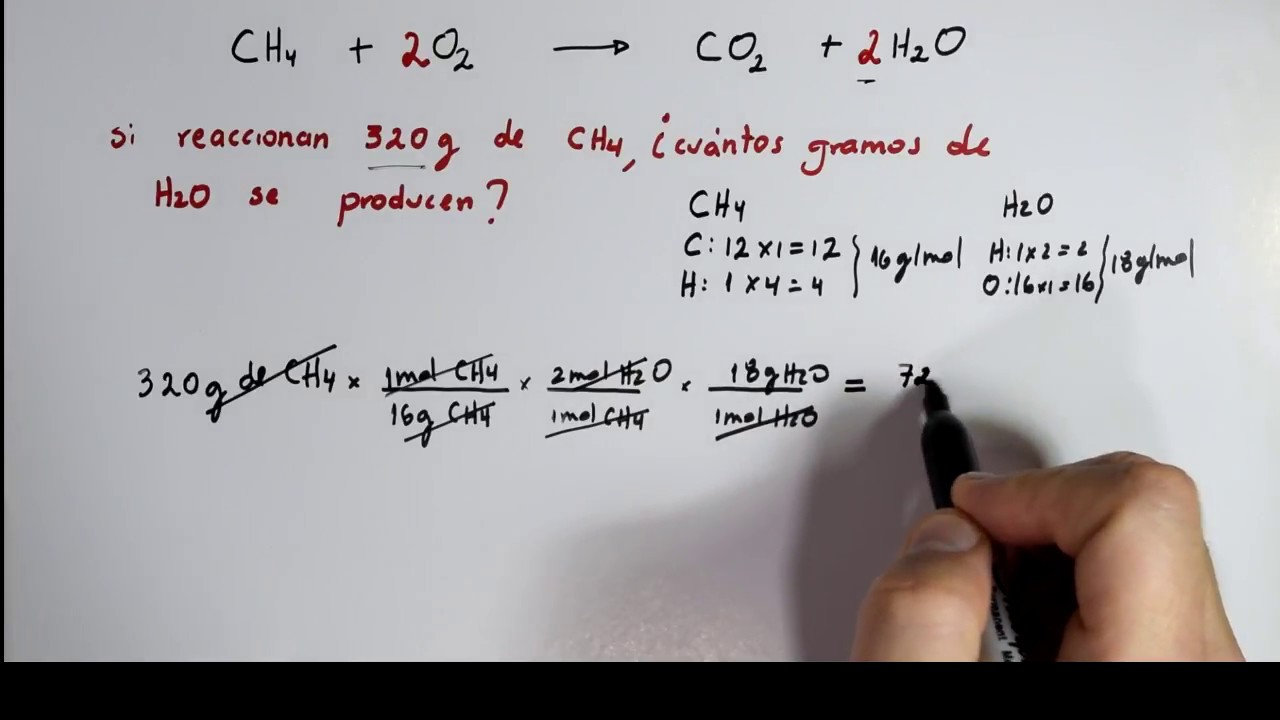 CH₄ + 2O₂ → CO₂ + 2H₂O
si reaccionan 320g de CH₄, ¿cuántos gramos de
H₂O se producen?
CH₄
C: 12 x 1 = 12
H: 1 x 4 = 4
} 16g/mol
H₂O
H: 1 x 2 = 2
O: 16 x 1 = 16
} 18g/mol
320g de CH₄ x 1mol CH₄ / 16g CH₄ x 2mol H₂O / 1mol CH₄ x 18g H₂O / 1mol H₂O = 72